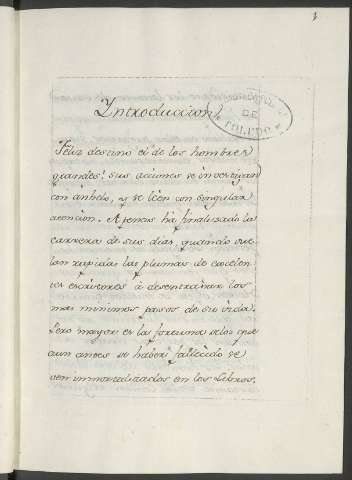 1
Yntroduccion
DE
TOLEDO
Feliz destino el de los hombres
grandes! sus acciones se investigan
con anhelo, y se léen con singular
atencion. Apenas há finalizado la
carrera de sus dias, quando vue-
lan rapidas las plumas de excelen-
tes escritores à desentrañar los
mas minimos pasos de su vida.
Pero mayor es la fortuna de los que
aun antes de haber fallecido se
ven inmortalizados en los Libros,